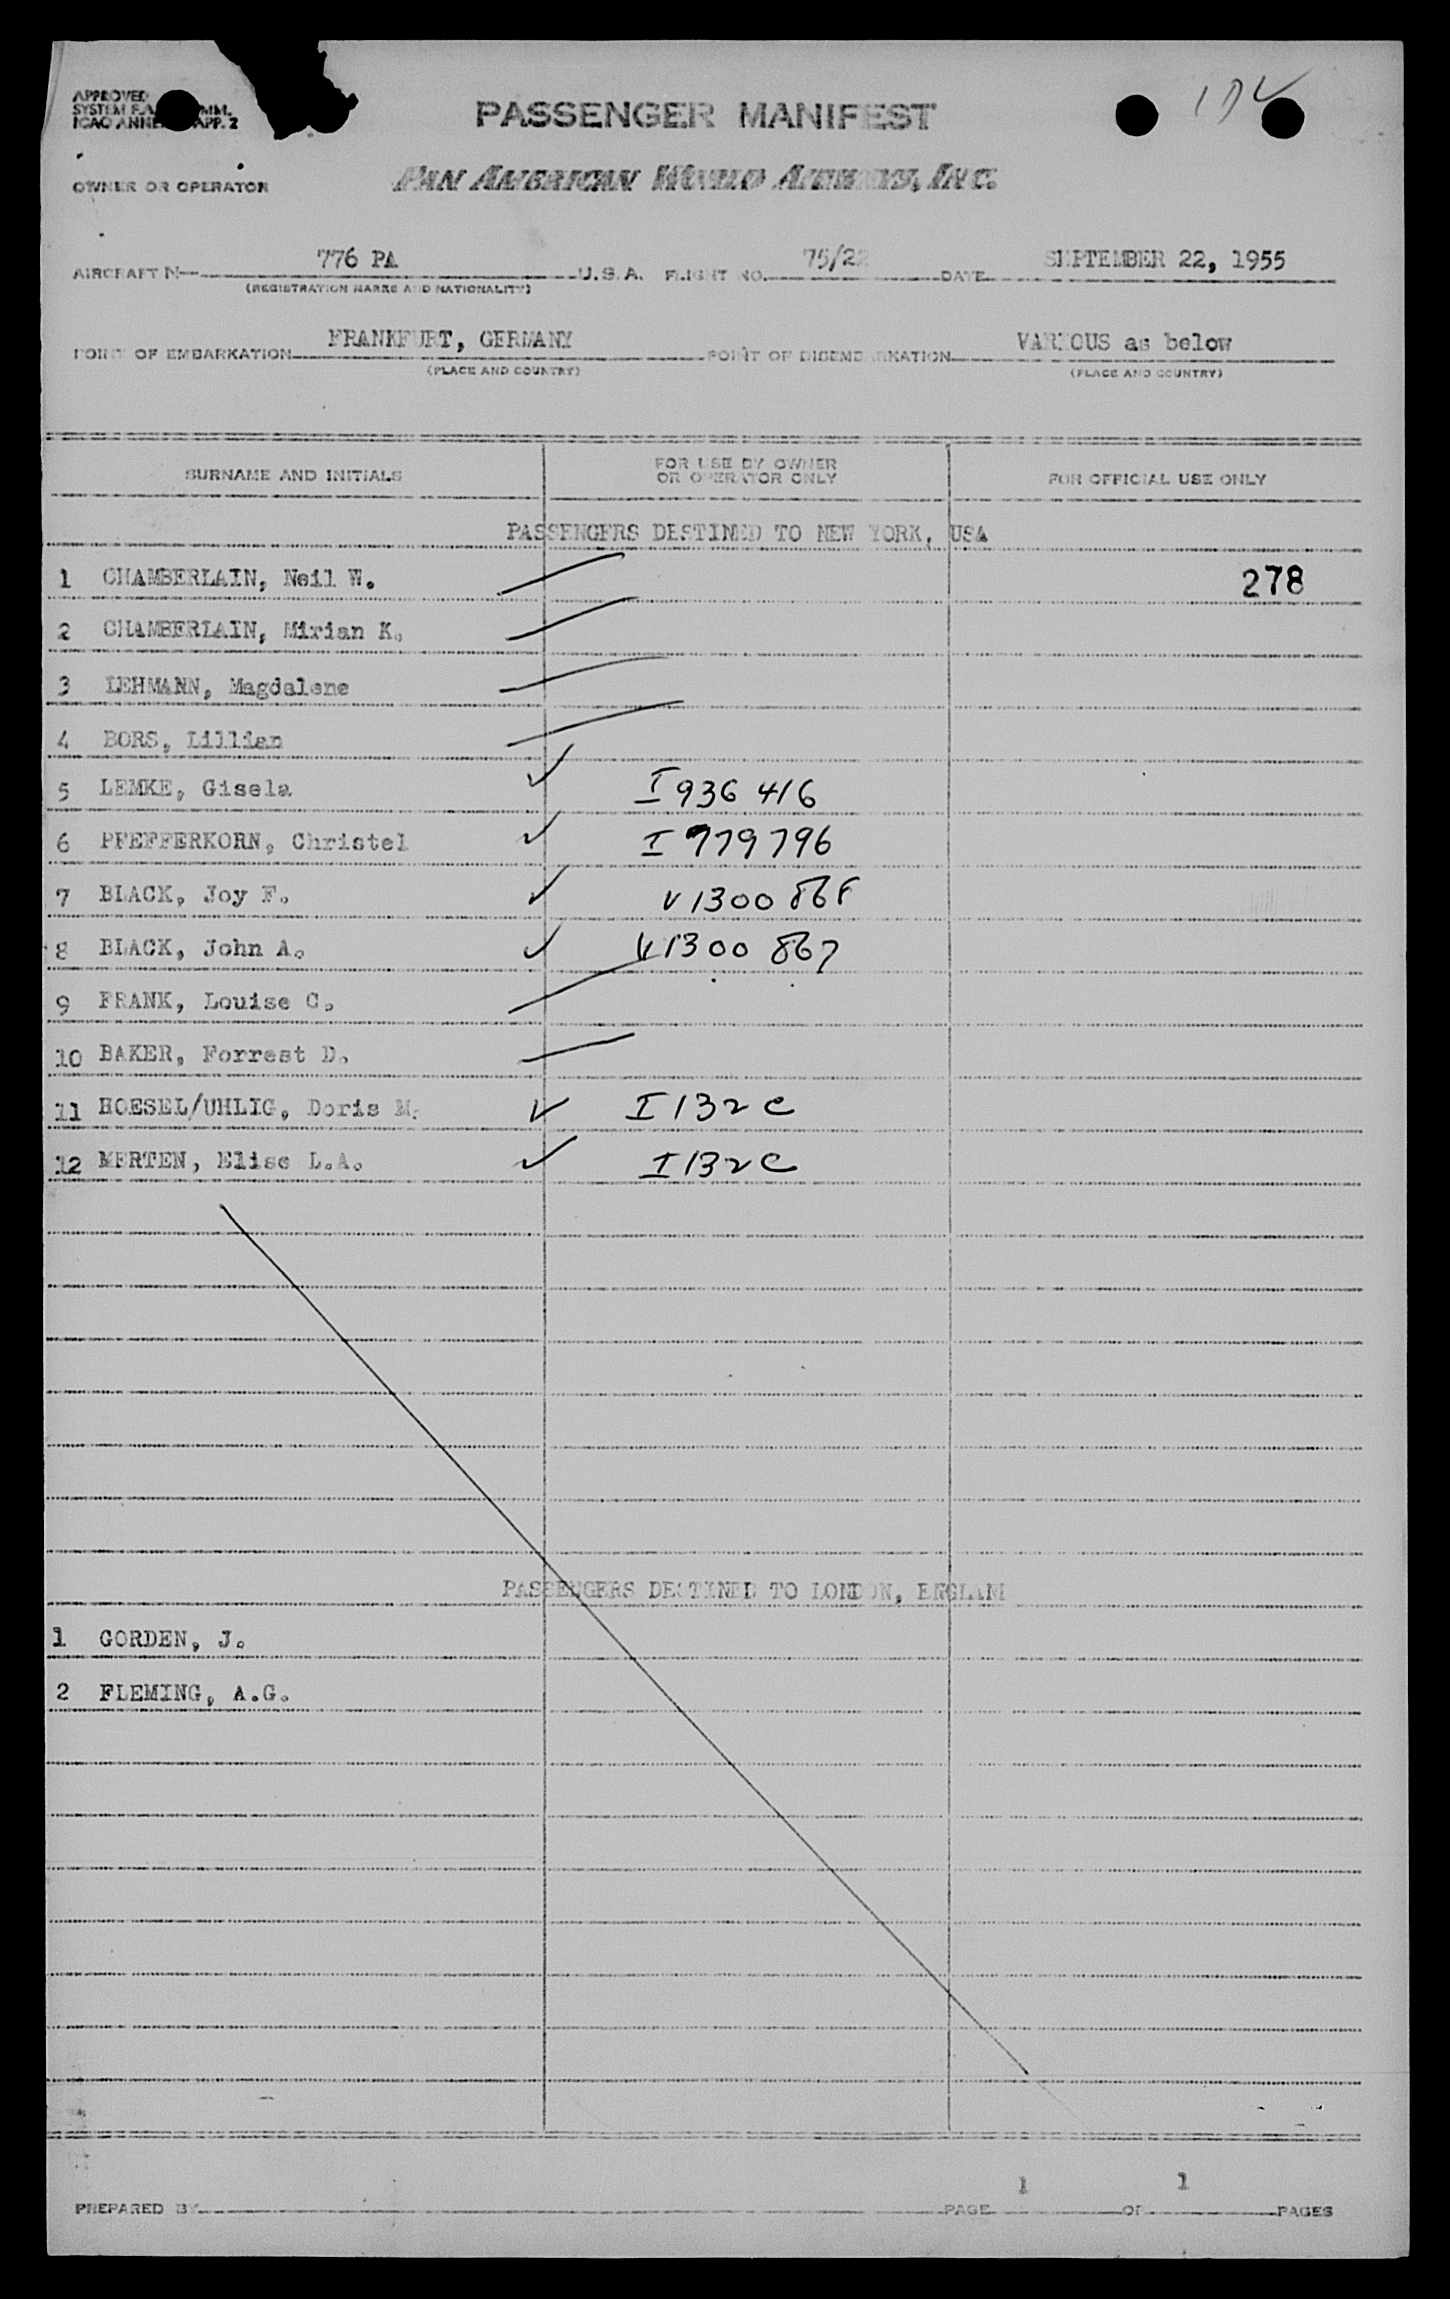 APPROVED
SYSTEM F.A. MM.
ICAO ANNE APP. 2
PASSENGER MANIFEST
OWNER OR OPERATOR PAN AMERICAN WORLD AIRWAYS, INC.
AIRCRAFT N 776 PA U.S.A. FLIGHT NO. 75/22 DATE SEPTEMBER 22, 1955
(REGISTRATION MARKS AND NATIONALITY)
POINT OF EMBARKATION FRANKFURT, GERMANY POINT OF DISEMBARKATION VARIOUS as below
(PLACE AND COUNTRY) (PLACE AND COUNTRY)
SURNAME AND INITIALS FOR USE BY OWNER OR OPERATOR ONLY FOR OFFICIAL USE ONLY
PASSENGERS DESTINED TO NEW YORK, USA
1 CHAMBERLAIN, Neil W. 278
2 CHAMBERLAIN, Mirian K.
3 LEHMANN, Magdalene
4 BORS, Lillian
5 LEMKE, Gisela ✓ I 936 416
6 PFEFFERKORN, Christel ✓ I 779796
7 BLACK, Joy F. ✓ V1300 868
8 BLACK, John A. ✓ V1300 867
9 FRANK, Louise C.
10 BAKER, Forrest D.
11 HOESEL/UHLIG, Doris M. ✓ I 132 C
12 MERTEN, Elise L.A. ✓ I 132 C
PASSENGERS DESTINED TO LONDON, ENGLAND
1 GORDEN, J.
2 FLEMING, A.G.
PREPARED BY PAGE 1 OF 1 PAGES